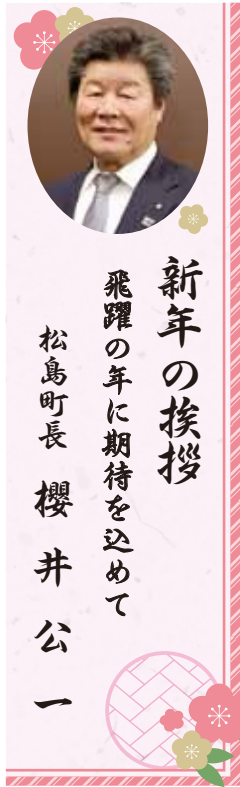 新年の挨拶
飛躍の年に期待を込めて
松島町長 櫻井公一